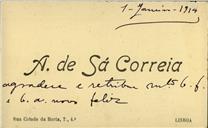 1-Janeiro-1914
A. de Sá Correia
agradece e retribue mtº b. f.
e b. a. novo feliz
Rua Cidade da Horta, 7., 4.º LISBOA